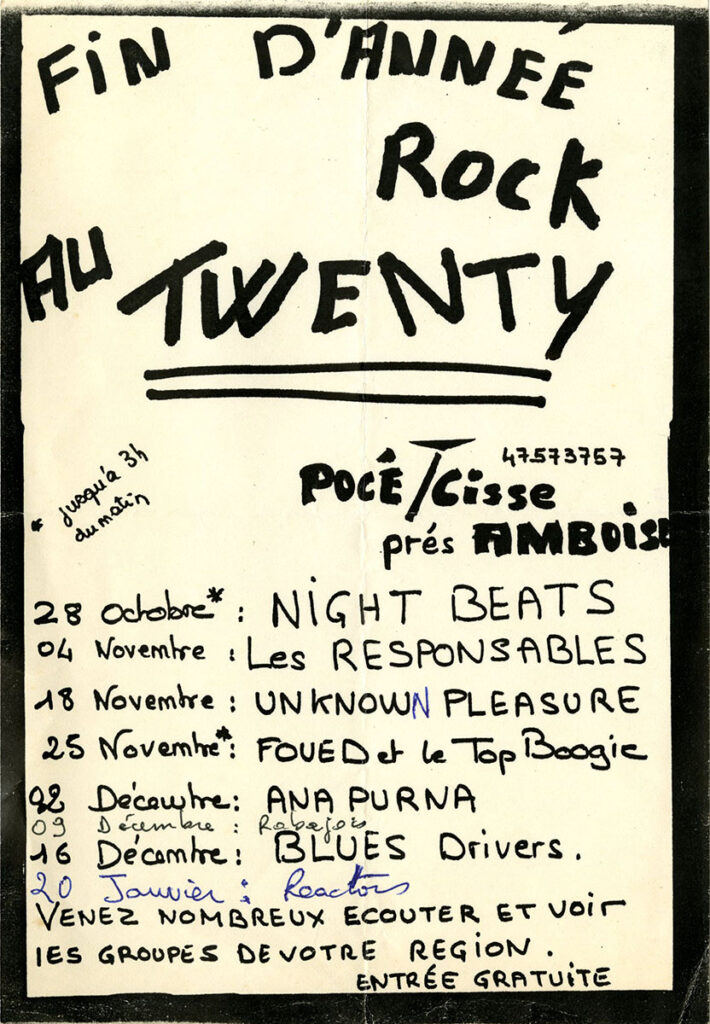 FiN D'ANNEÉ
ROCK
AU TWENTY
* jusqu'à 3h
du matin
47573757
POCÊ /Cisse
prés AMBOISE
28 Octobre* : NiGHT BEATS
04 Novembre : Les RESPONSABLES
18 Novembre : UNKNOWN PLEASURE
25 Novembre* : FOUED et le Top Boogie
02 Décembre : ANA PURNA
09 Décembre : Rabajois
16 Décembre : BLUES Drivers.
20 Janvier : Reactors
VENEZ NOMBREUX ECOUTER ET VOIR
lES GROUPES DE VOTRE REGION.
ENTRÉE GRATUITE